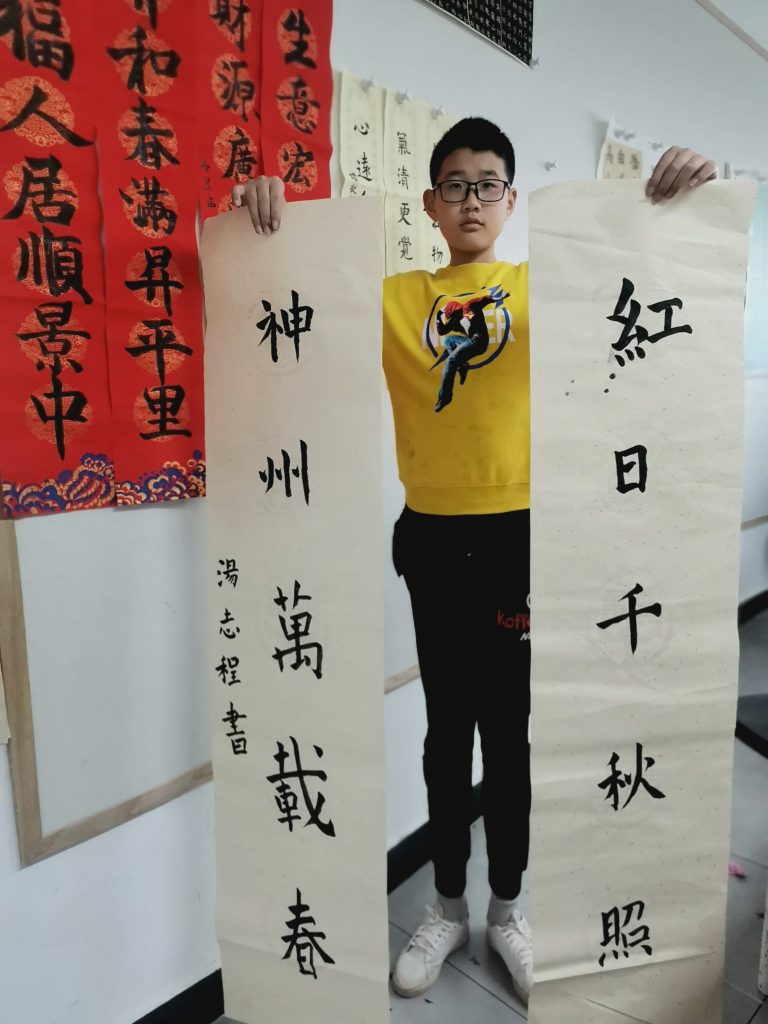 紅日千秋照
神州萬載春
湯志程書
生意宏
財源廣
和春滿昇平里
福人居順景中
氣清更覺
心遠
物